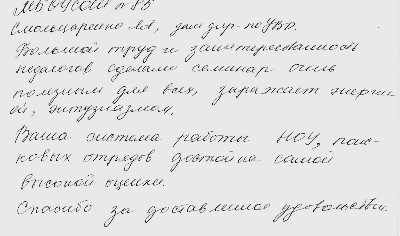 МБОУСОШ № 85
Смольцаренко Л.А, зам дир. по УВР.
Большой труд и заинтересованность
педагогов сделали семинар очень
полезным для всех, заражает энерги-
ей, энтузиазмом.
Ваша система работы НОУ, поис-
ковых отрядов достойна самой
высокой оценки.
Спасибо за доставленное удовольствие.